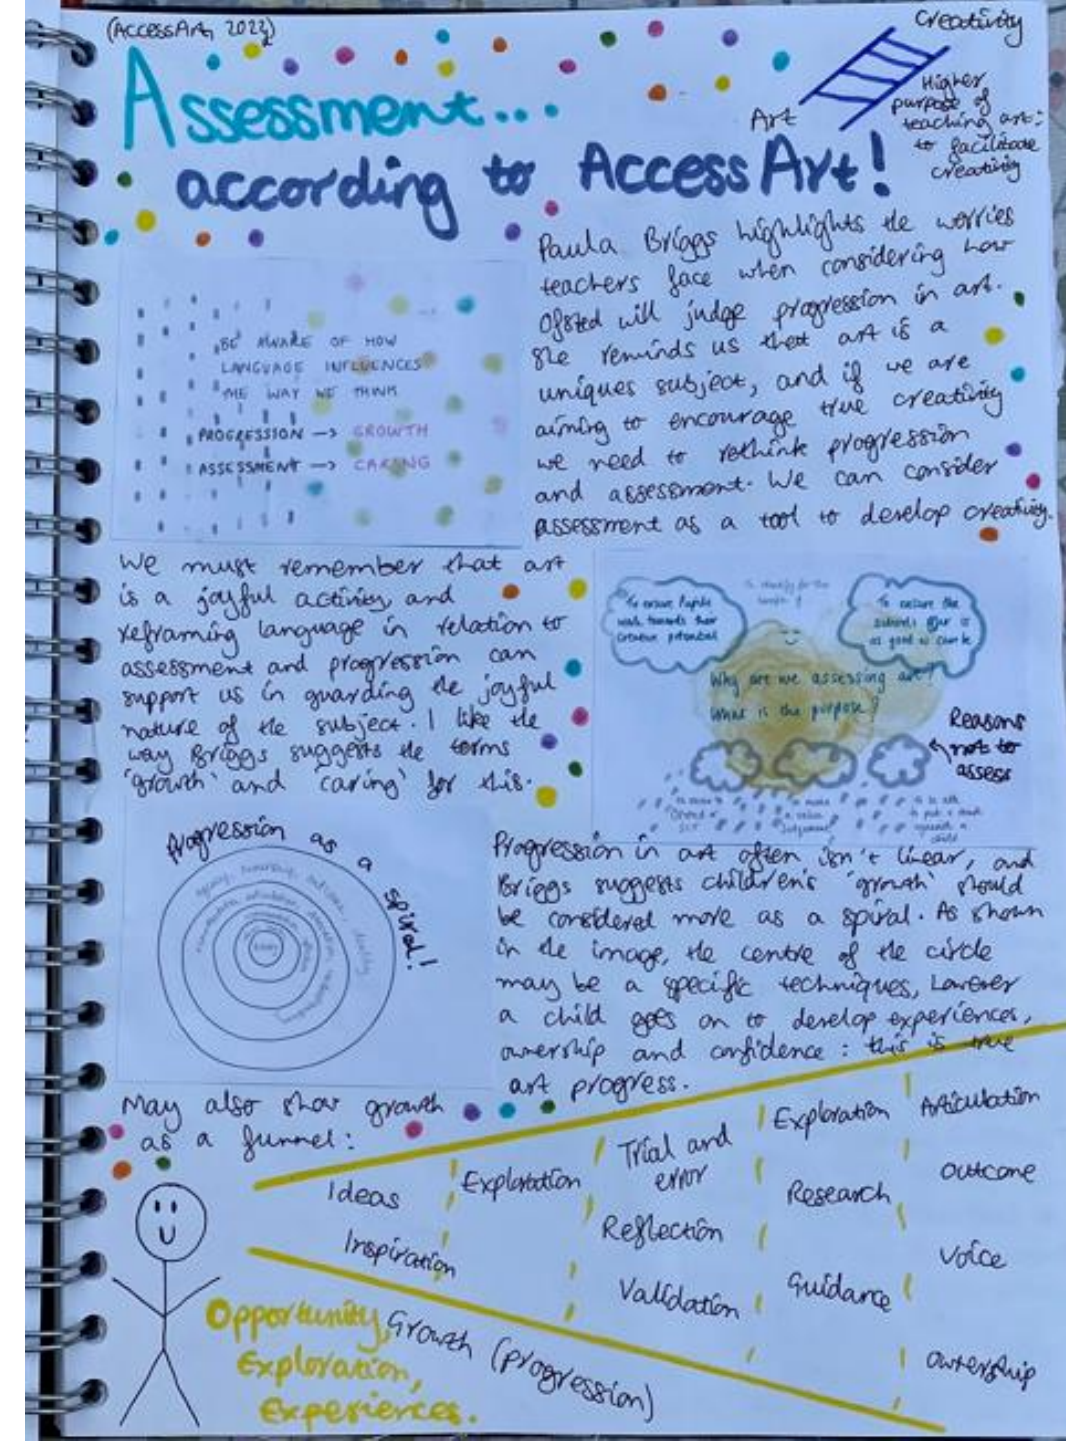 (AccessArt, 2022)
Creativity
Assessment...
Art
Higher
purpose of
teaching art:
to facilitate
creativity
according to AccessArt!
Paula Briggs highlights the worries
teachers face when considering how
Ofsted will judge progression in art.
She reminds us that art is a
uniques subject, and if we are
aiming to encourage true creativity
we need to rethink progression
and assessment. We can consider
assessment as a tool to develop creativity.
BE AWARE OF HOW
LANGUAGE INFLUENCES
THE WAY WE THINK
PROGRESSION → GROWTH
ASSESSMENT → CARING
We must remember that art
is a joyful activity, and
reframing language in relation to
assessment and progression can
support us in guarding the joyful
nature of the subject. I like the
way Briggs suggests the terms
'growth' and 'caring' for this.
To ensure Pupils
walk towards their
creative potential
To ensure the
schools offer is
as good as can be
Why are we assessing art?
What is the purpose?
Reasons
not to
assess
Progression as a spiral!
Progression in art often isn't linear, and
Briggs suggests children's 'growth' should
be considered more as a spiral. As shown
in the image, the centre of the circle
may be a specific techniques, however
a child goes on to develop experiences,
ownership and confidence: this is true
art progress.
May also show growth
as a funnel:
Ideas
Inspiration
Exploration
Trial and
error
Reflection
Validation
Exploration
Research
Guidance
Articulation
outcome
voice
ownership
Opportunity,
Exploration,
Experiences.
Growth (progression)